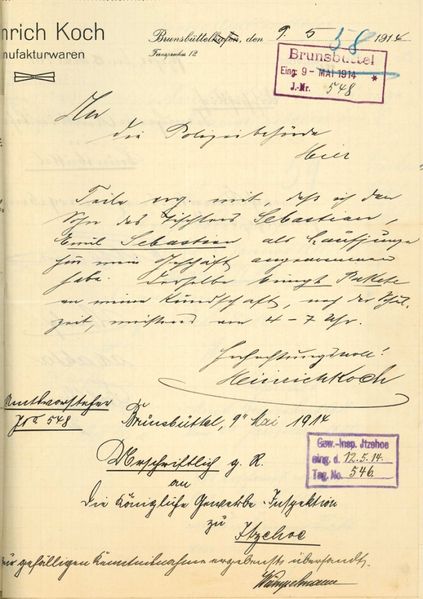 nrich Koch
nufakturwaren
Brunsbüttelhafen, den 9. 5. 1914
Fernsprecher 12
58
Brunsbüttel
Eing: 9 - MAI 1914 *
J.-Nr. 548
An
die Polizeibehörde
Hier
Teile erg. mit, daß ich den
Sohn des Tischlers Sebastian,
Emil Sebastian als Laufjunge
für mein Geschäft angenommen
habe. Derselbe bringt Pakete
an meine Kundschaft, nach der Schul-
zeit, meistens von 4-7 Uhr.
Hochachtungsvoll!
Heinrich Koch
Amtsvorsteher
J No 548
Brunsbüttel, 9 Mai 1914
Urschriftlich g. R.
an
die Königliche Gewerbe-Inspektion
zu
Itzehoe
zur gefälligen Kenntnisnahme ergebenst übersandt.
Gew.-Insp. Itzehoe
eing. d. 12.5.14.
Tag. No. 546.